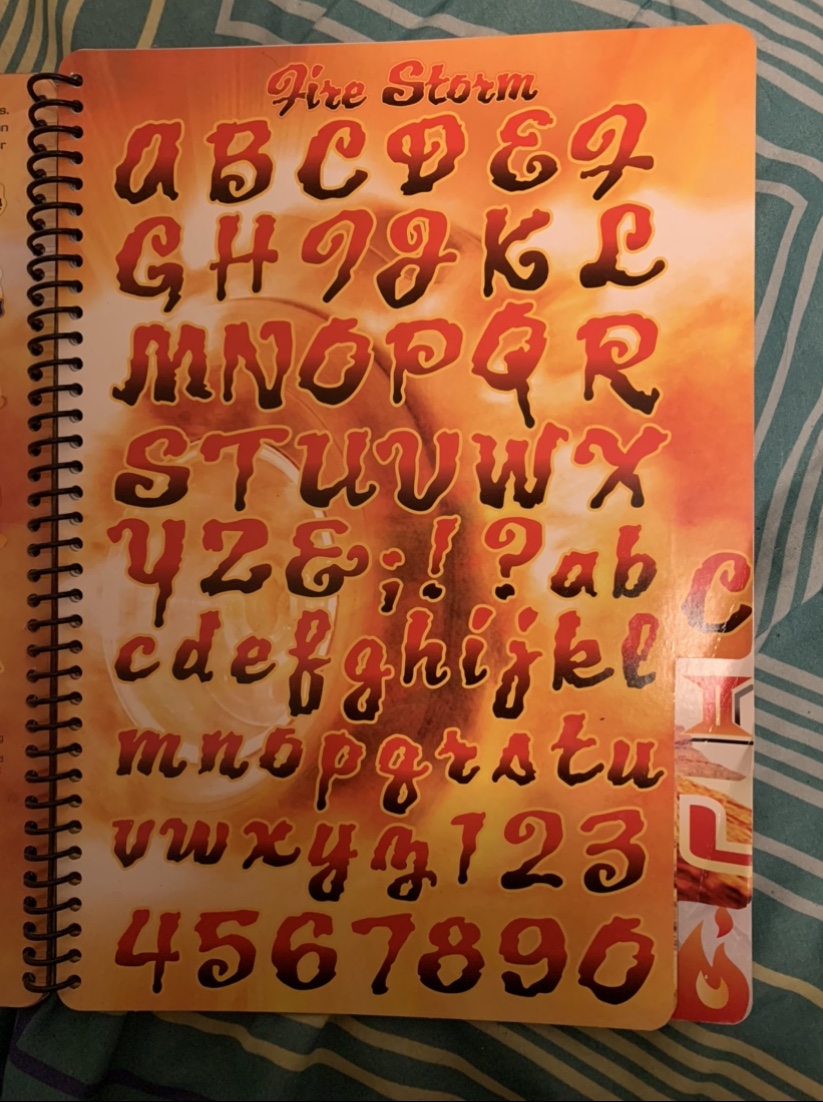 Fire Storm
A B C D E F
G H I J K L
M N O P Q R
S T U V W X
Y Z & ; ! ? a b
c d e f g h i j k l
m n o p q r s t u
v w x y z 1 2 3
4 5 6 7 8 9 0
C